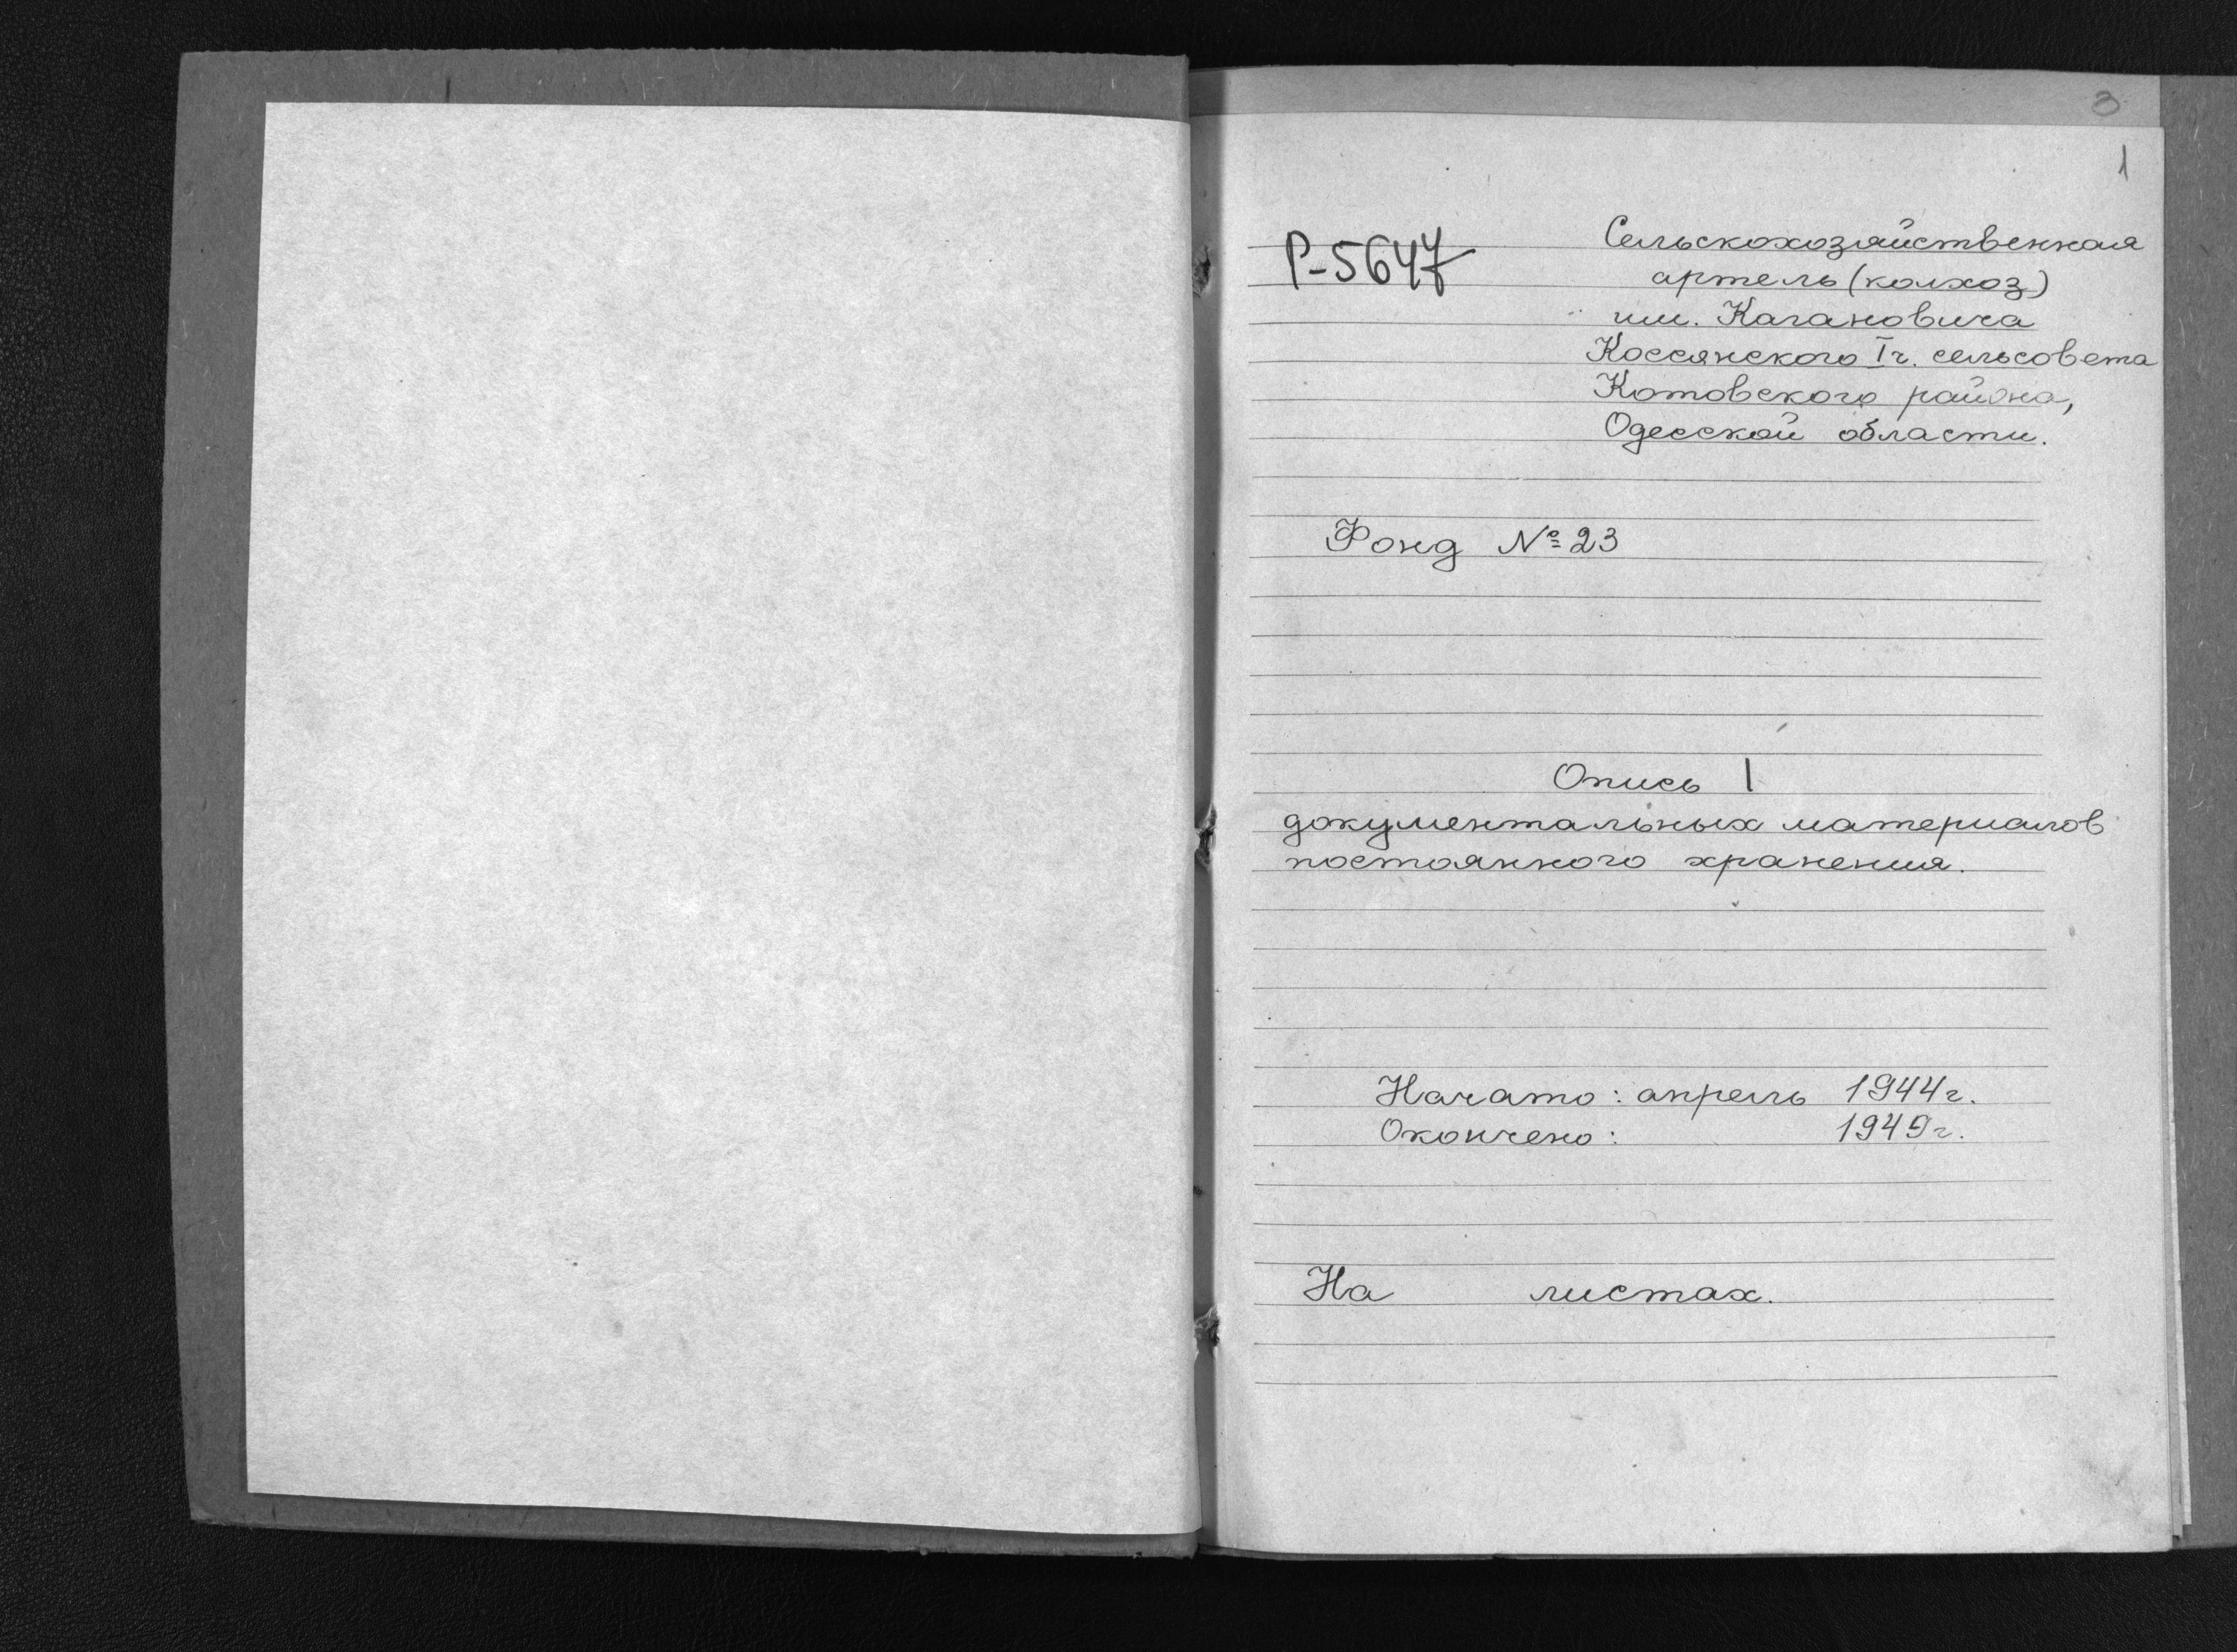 3
1
Р-5647
Сельскохозяйственная
артель (колхоз)
им. Кагановича
Коссянского Iг. сельсовета
Котовского района,
Одесской области.
Фонд № 23
Опись 1
документальных материалов
постоянного хранения.
Начато: апрель 1944г.
Окончено: 1949г.
На листах.